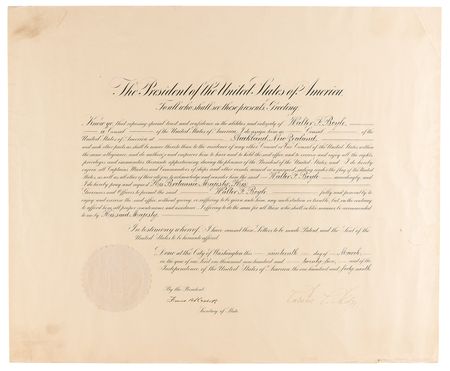 The President of the United States of America
To all who shall see these presents, Greeting:
Know ye, that reposing special trust and confidence in the abilities and integrity of Walter F. Boyle,
a Consul of the United States of America, I do assign him as Consul of the
United States of America at Auckland, New Zealand,
and such other parts as shall be nearer thereto than to the residence of any other Consul or Vice Consul of the United States within
the same allegiance, and do authorize and empower him to have and to hold the said office and to exercise and enjoy all the rights,
privileges and immunities thereunto appertaining, during the pleasure of the President of the United States. And I do hereby
enjoin all Captains, Masters and Commanders of ships and other vessels, armed or unarmed, sailing under the flag of the United
States, as well as all other of their citizens, to acknowledge and consider him the said Walter F. Boyle accordingly, and
I do hereby pray and request His Britannic Majesty, His
Governors and Officers to permit the said Walter F. Boyle fully and peaceably to
enjoy and exercise the said office without giving or suffering to be given unto him, any molestation or trouble, but on the contrary
to afford him all proper countenance and assistance; I offering to do the same for all those who shall in like manner be recommended
to me by His said Majesty.
In testimony whereof, I have caused these Letters to be made Patent, and the Seal of the
United States to be hereunto affixed.
Done at the City of Washington this nineteenth day of March,
in the year of our Lord one thousand nine hundred and twenty-five, and of the
Independence of the United States of America the one hundred and forty-ninth.
By the President:
Secretary of State.